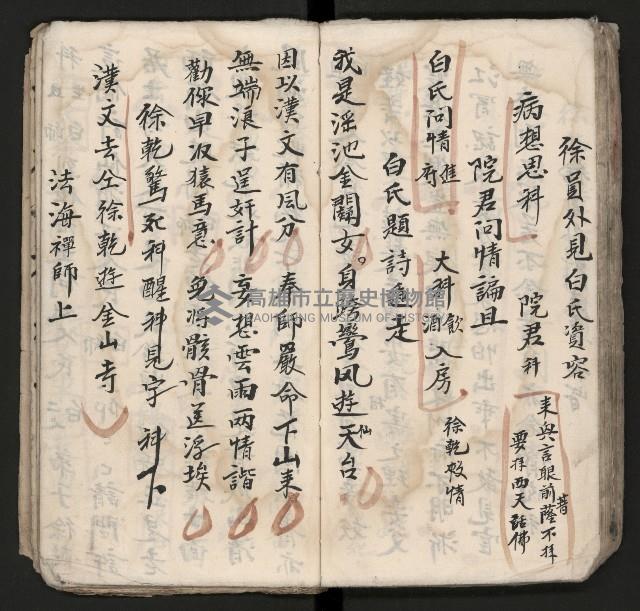 徐員外見白氏資容
病想思科　院君科　来與言眼前菩薩不拜
要拜西天話佛
院君問情論且
白氏問情進府　大科飲酒入房　徐乾假情
白氏題詩走
我是淫池金闕女。身騎鸞凤遊仙天台
因以漢文有凤分　奉師嚴命下山来
無端浪子逞奸計　妄想雲雨兩情諧
勸你早收猿馬意　免将骸骨葬浮埃
徐乾驚死科醒科見字科下
漢文去仝徐乾遊金山寺
法海禪師上
高雄市立歷史博物館
KAOHSIUNG MUSEUM OF HISTORY